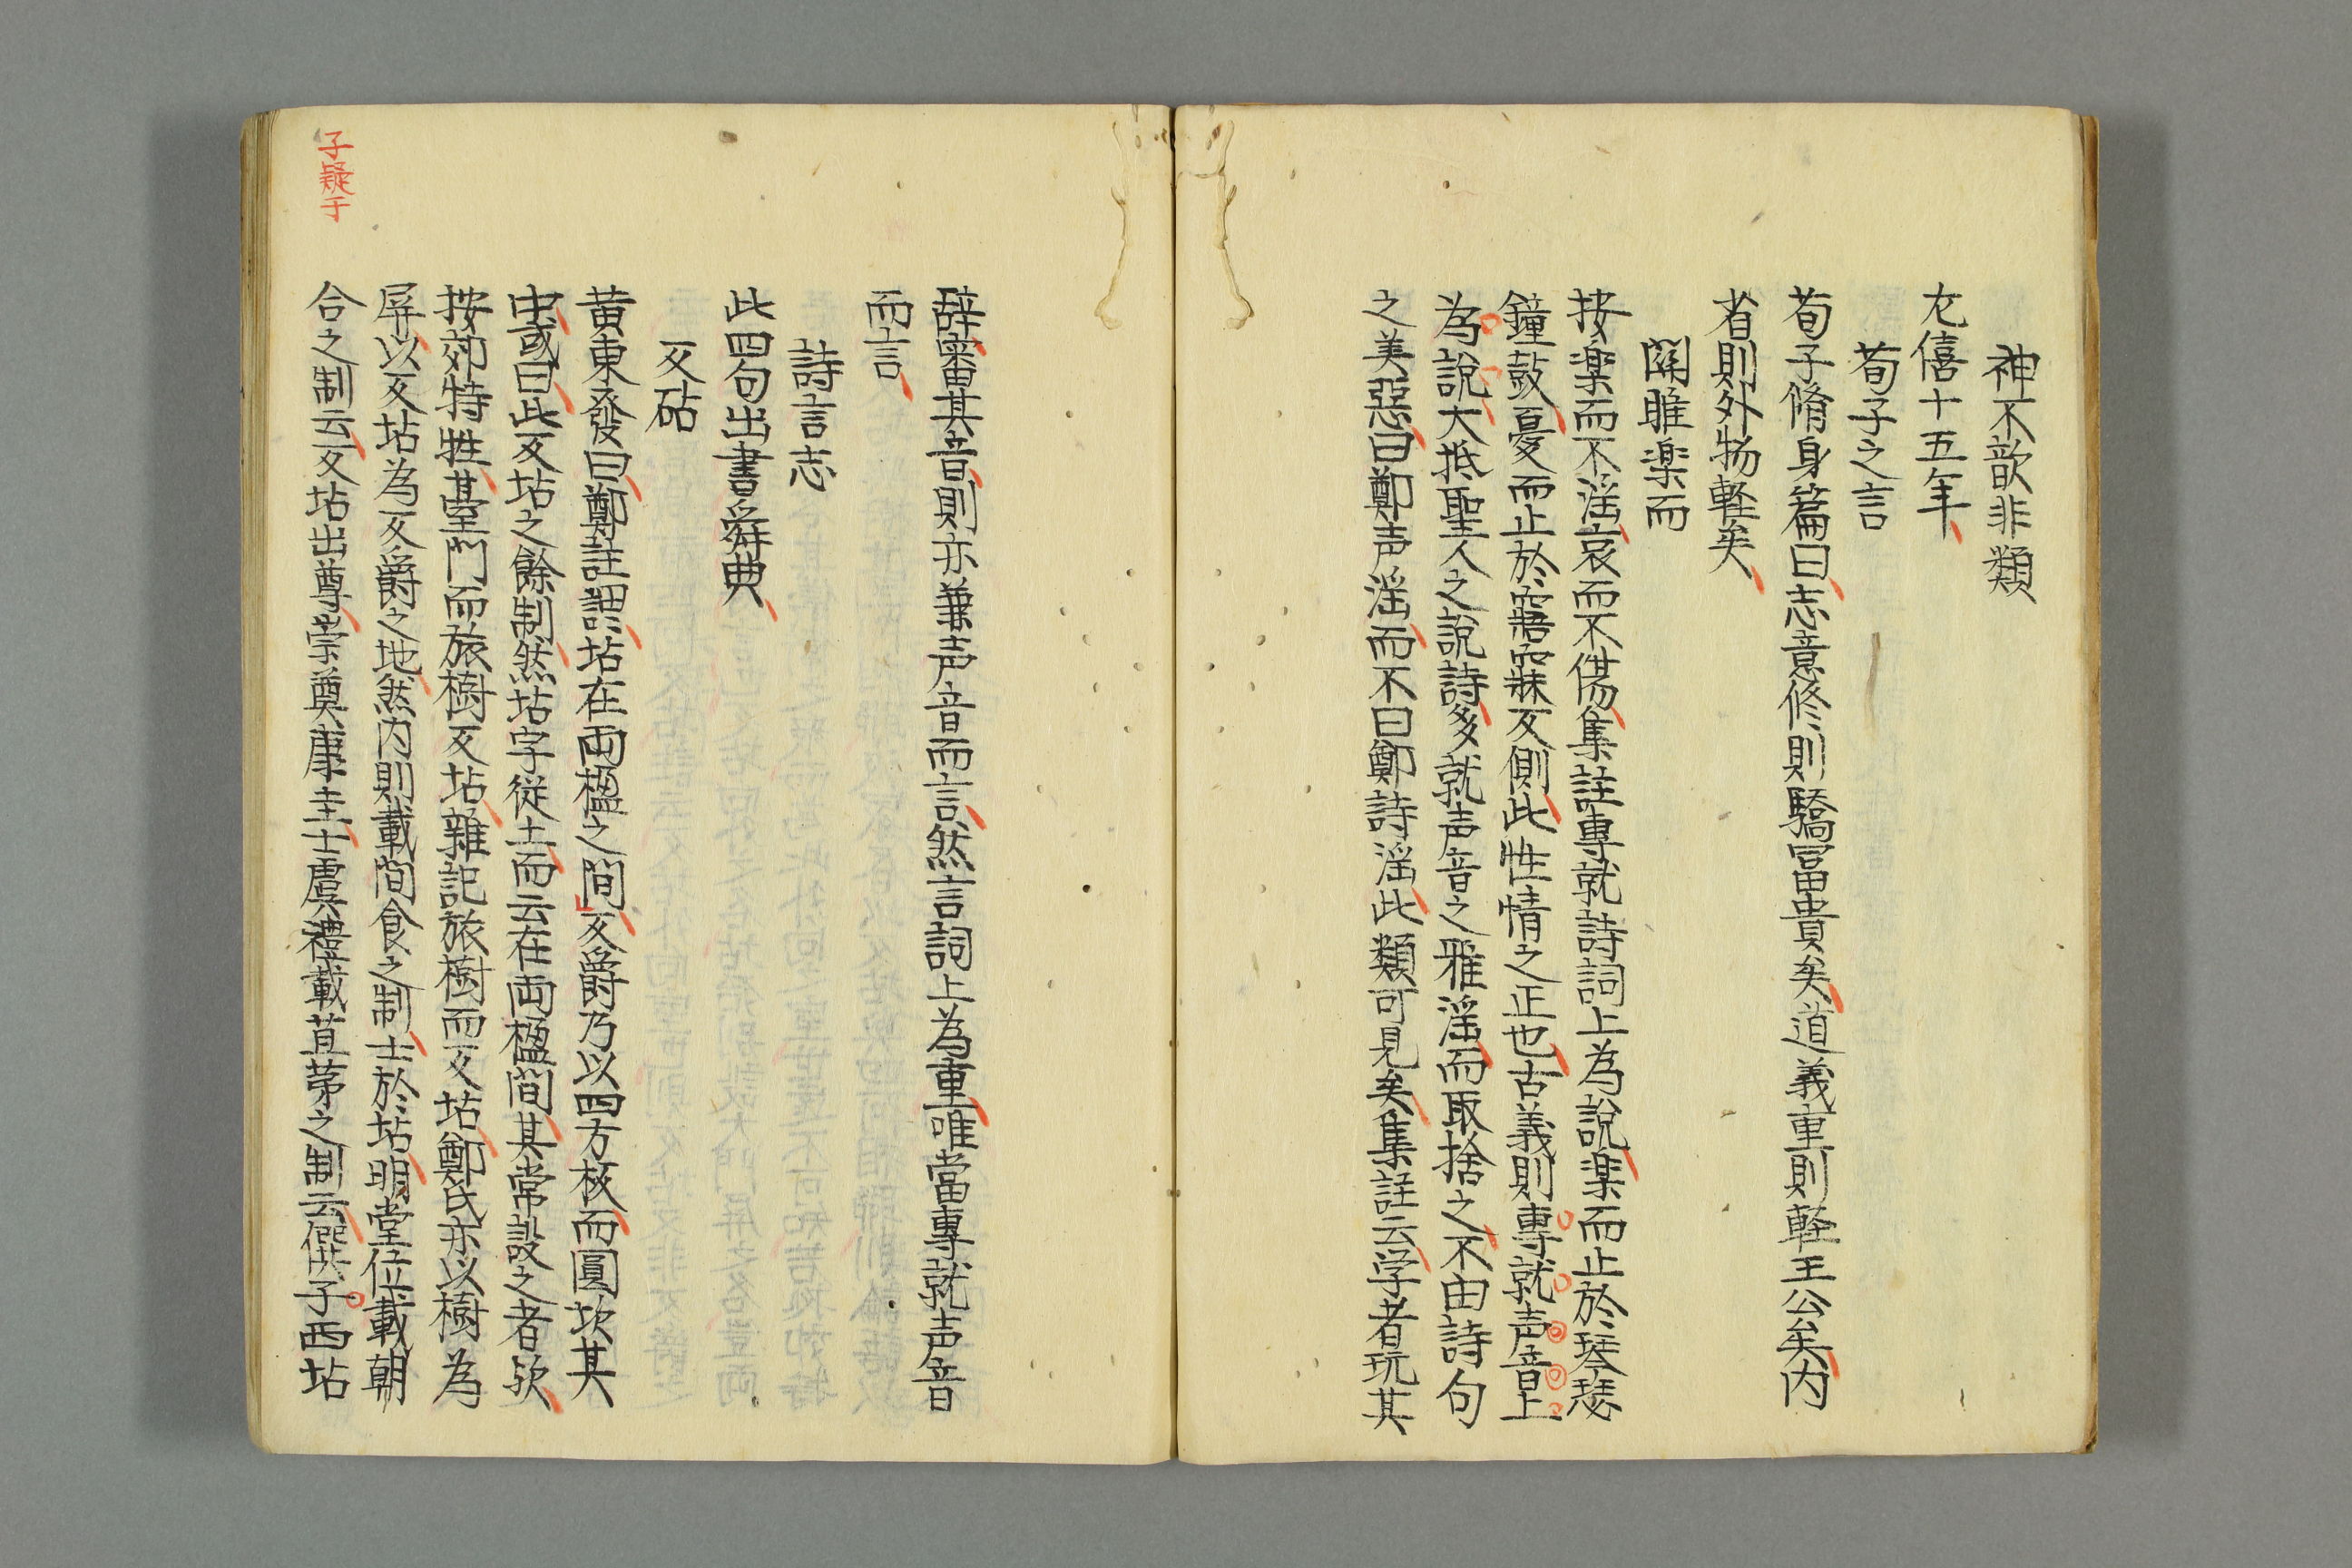 神不歆非類
左僖十五年
荀子之言
荀子脩身篇曰志意修則驕冨貴矣道義重則軽王公矣内
省則外物軽矣
関雎楽而
按楽而不淫哀而不傷集註専就詩詞上為說楽而止於琴瑟
鐘鼓憂而止於寤寐反側此性情之正也古義則専就声音上
為說大抵聖人之說詩多就声音之雅淫而取捨之不由詩句
之美惡曰鄭声淫而不曰鄭詩淫此類可見矣集註云学者玩其
辞審其音則亦兼声音而言然言詞上為重唯當専就声音
而言
詩言志
此四句出書舜典
反坫
黄東發曰鄭註謂坫在両楹之間反爵乃以四方板而圓坎其
中或曰此反坫之餘制然坫字從土而云在両楹間其常設之者欤
按郊特牲臺門而旅樹反坫雜記旅樹而反坫鄭氏亦以樹為
屏以反坫為反爵之地然内則載閣食之制士於坫明堂位載朝
合之制云反坫出尊崇奠康圭士虞禮載苴茅之制云僎子西坫
子疑于